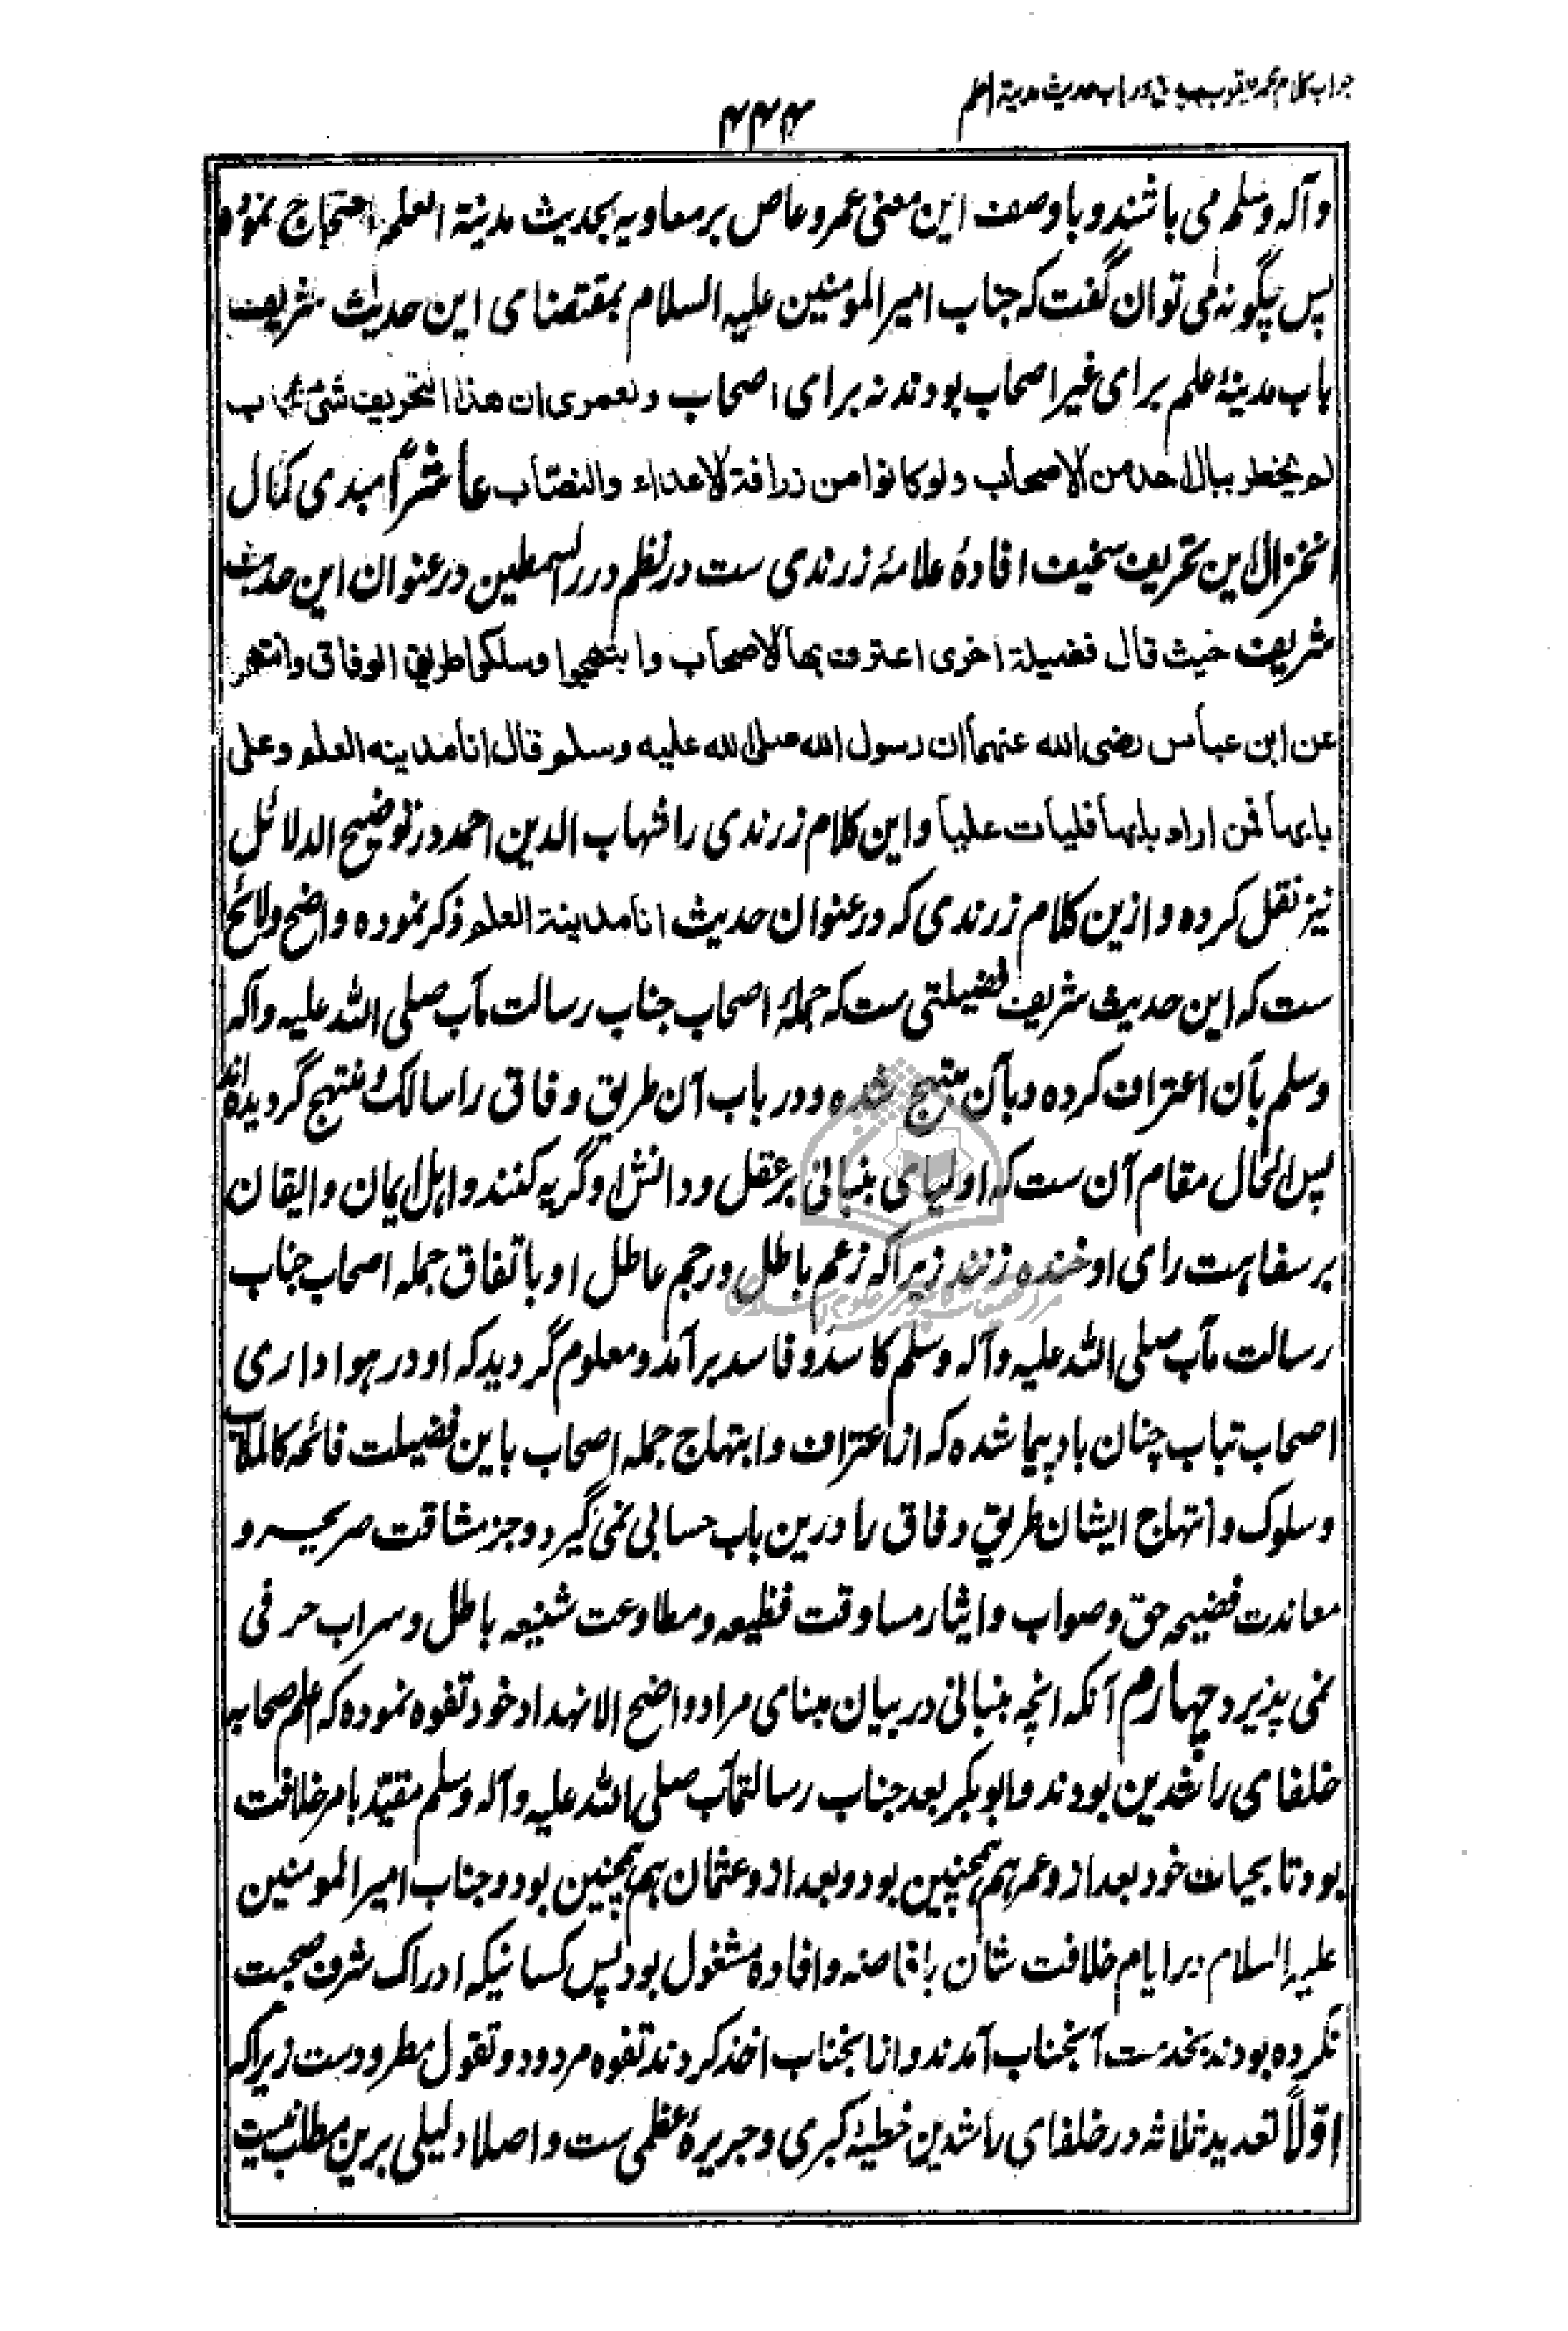 جواب کلام محمد یعقوب بنبانی در باب حدیث مدینة العلم
۴۴۴
وآله وسلم می باشند و باوصف این معنی عمرو عاص بر معاویه بحدیث مدینة العلم احتجاج نموده
پس چگونه می توان گفت که جناب امیر المومنین علیه السلام بمقتضای این حدیث شریف
باب مدینۀ علم برای غیر اصحاب بودند نه برای اصحاب ولعمری ان هذا التحریف شئ عجاب
لم یخطر ببال احد من الاصحاب ولو کانوا من زرافة الاعداء والنصّاب عاشراً مبدی کمال
انخزال این تحریف سخیف افادۀ علامۀ زرندی ست در نظم درر السمطین در عنوان این حدیث
شریف حیث قال فضیلة اخری اعترف بها الاصحاب وابتهجوا وسلکوا طریق الوفاق وانتهجوا
عن ابن عباس رضی الله عنهما ان رسول الله صلی الله علیه وسلم قال انا مدینه العلم وعلی
بابها فمن اراد بابها فلیات علیا واین کلام زرندی را شهاب الدین احمد در توضیح الدلائل
نیز نقل کرده و ازین کلام زرندی که در عنوان حدیث انا مدینة العلم ذکر نموده واضح و لائح
ست که این حدیث شریف فضیلتی ست که جملۀ اصحاب جناب رسالت مآب صلی الله علیه وآله
وسلم بآن اعتراف کرده و بآن مبتهج شده و در باب آن طریق وفاق را سالک و منتهج گردیده اند
پس الحال مقام آن ست که اولیای بنبانی بر عقل و دانش او گریه کنند و اهل ایمان و ایقان
بر سفاهت رای او خنده زنند زیرا که زعم باطل و رجم عاطل او باتفاق جمله اصحاب جناب
رسالت مآب صلی الله علیه وآله وسلم کاسد و فاسد برآمد و معلوم گردید که او در هواداری
اصحاب تباب چنان باد پیما شده که از اعتراف و ابتهاج جمله اصحاب باین فضیلت فائحه کالملاب
و سلوک و انتهاج ایشان طریق وفاق را درین باب حسابی نمی گیرد و جز مشاقت صریحه و
معاندت فضیحه حق و صواب و ایثار مساوقت فظیعه و مطاوعت شنیعه باطل و سراب حرفی
نمی پذیرد چهارم آنکه انچه بنبانی در بیان مبنای مراد واضح الانهداد خود تفوه نموده که اعلم صحابه
خلفای راشدین بودند و ابو بکر بعد جناب رسالتمآب صلی الله علیه وآله وسلم مقیّد بامر خلافت
بود تا بحیات خود بعد ازو عمر هم همچنین بود و بعد ازو عثمان هم همچنین بود و جناب امیر المومنین
علیه السلام در ایام خلافت شان بافاضه و افاده مشغول بود پس کسانیکه ادراک شرف صحبت
نکرده بودند بخدمت آنجناب آمدند و ازانجناب اخذ کردند تفوه مردود و تقول مطرودست زیرا که
اوّلاً تعدید ثلاثه در خلفای راشدین خطیئۀ کبری و جریرۀ عظمی ست و اصلا دلیلی برین مطلب نیست